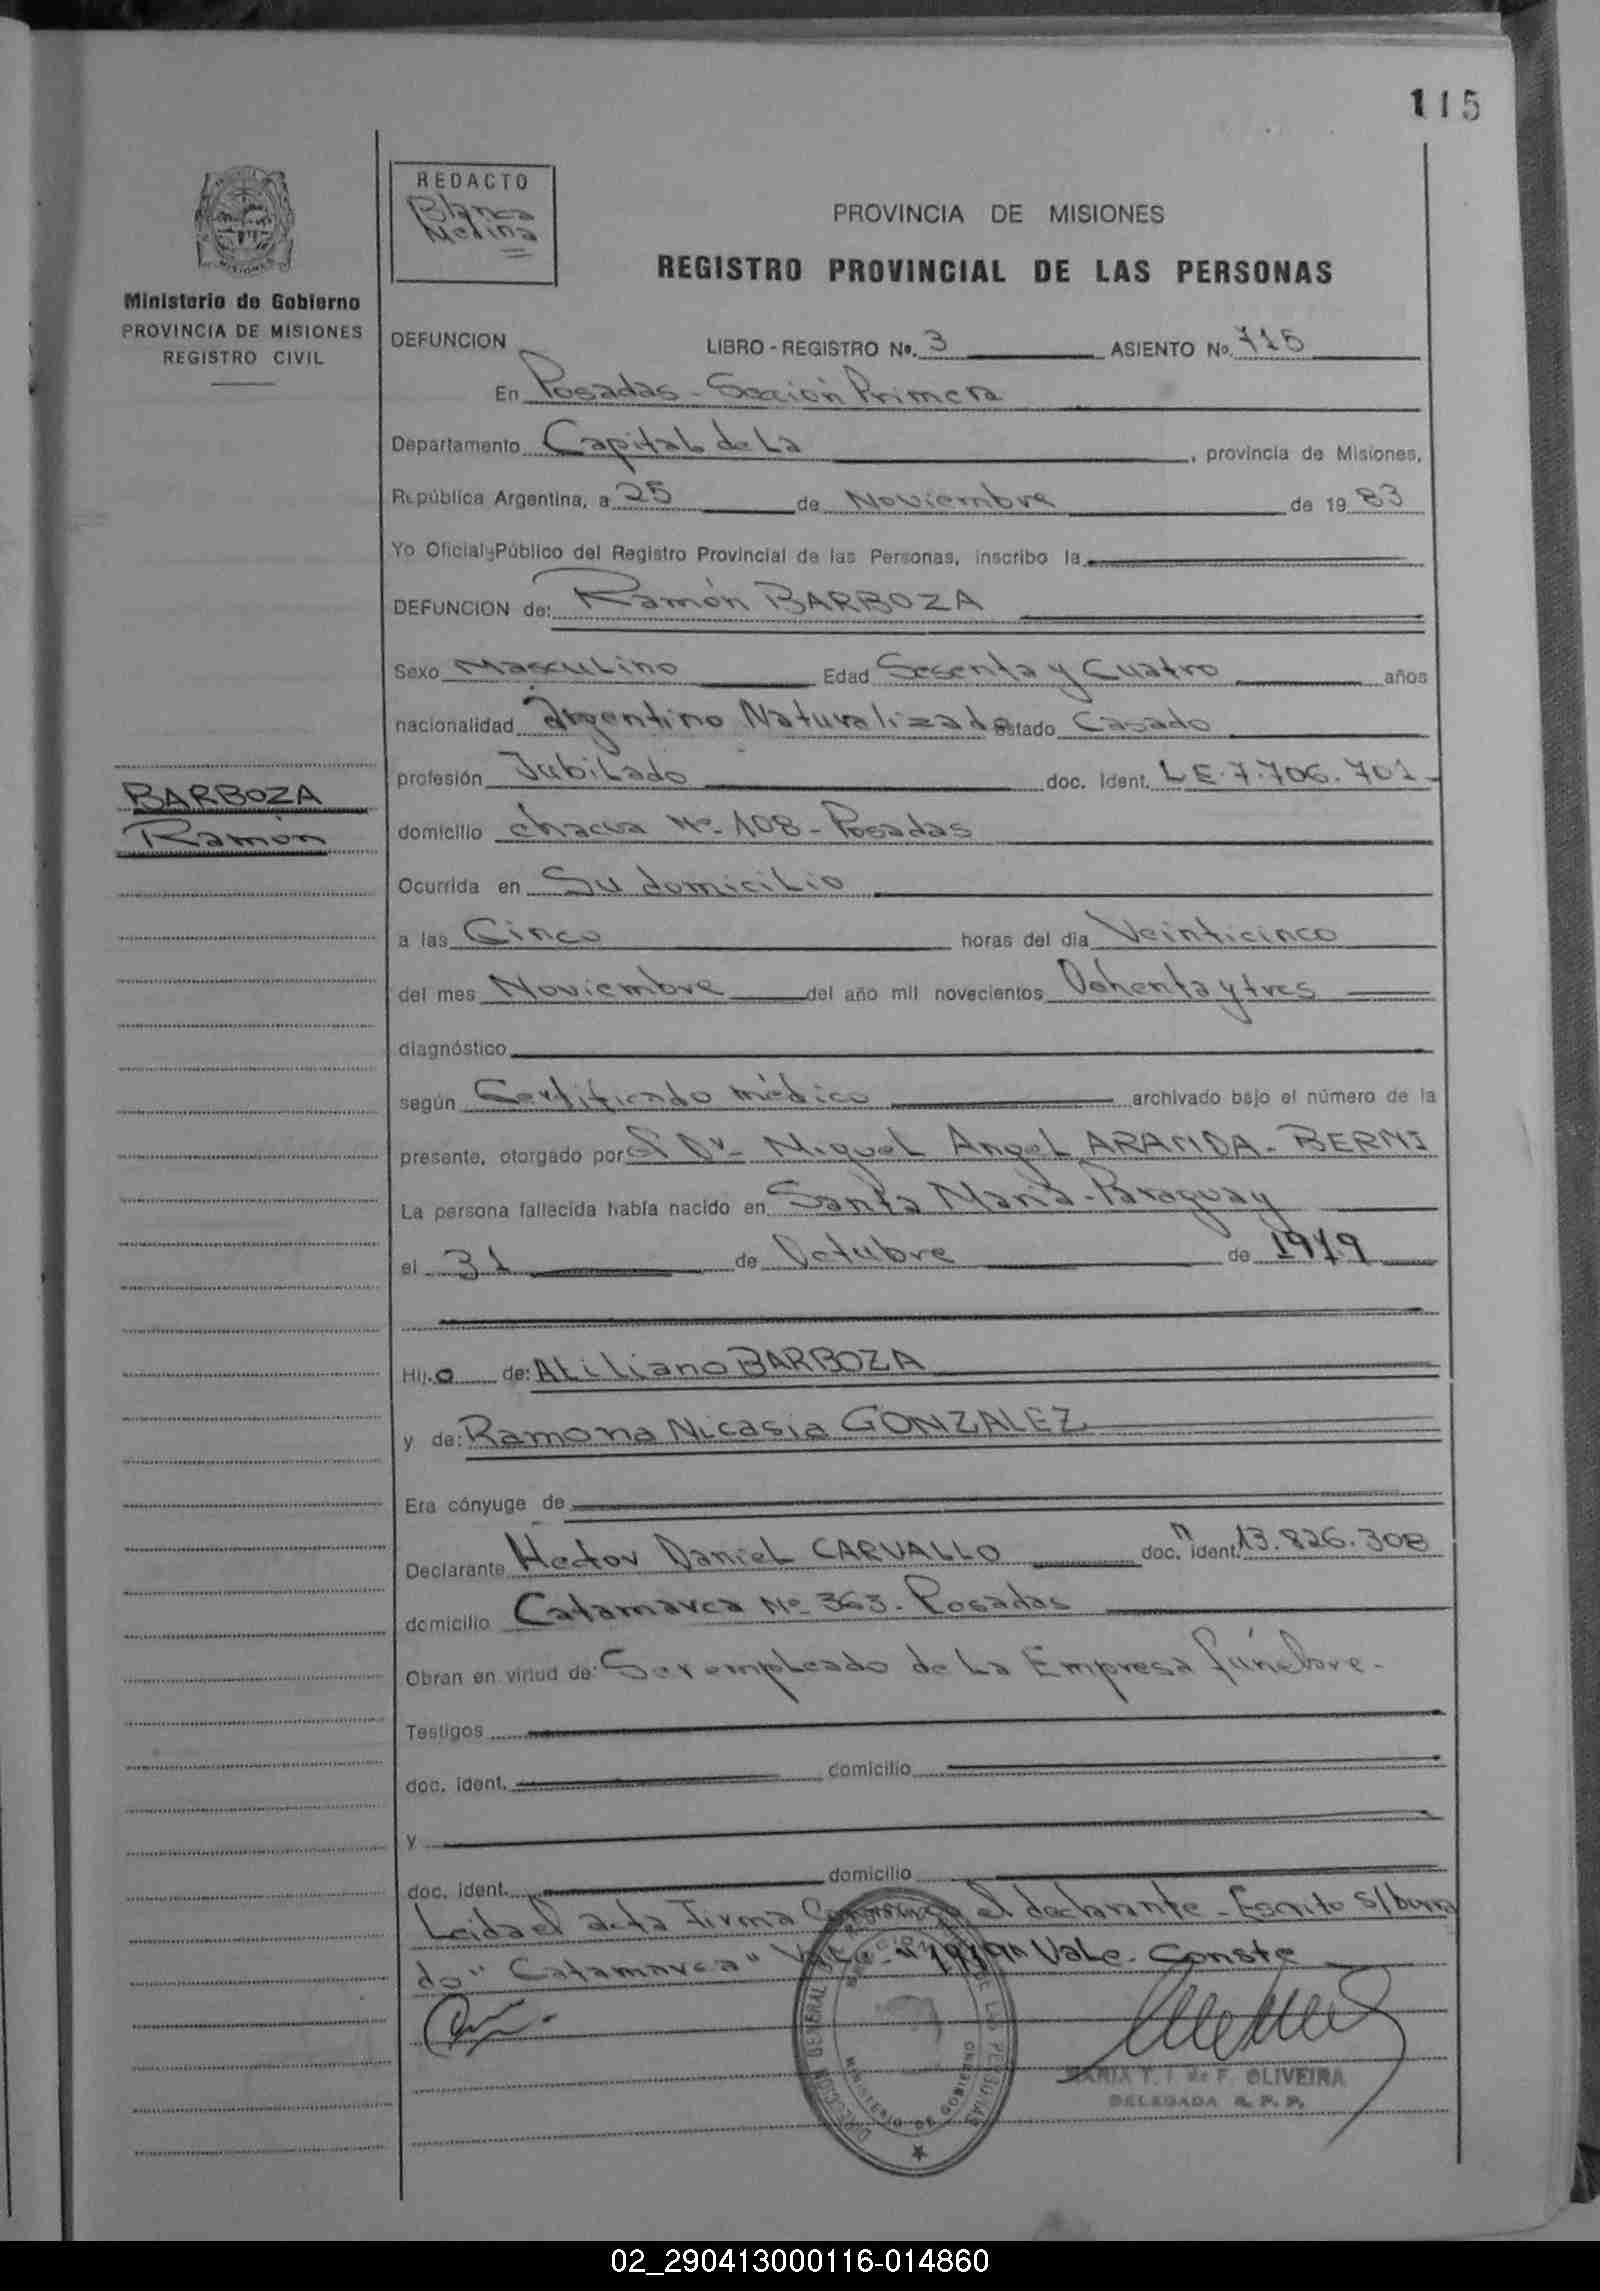 115
REDACTO
Blanca
Medina
MISIONES
Ministerio de Gobierno
PROVINCIA DE MISIONES
REGISTRO CIVIL
PROVINCIA DE MISIONES
REGISTRO PROVINCIAL DE LAS PERSONAS
DEFUNCION LIBRO - REGISTRO No. 3 ASIENTO No. 715
En Posadas - Sección Primera
Departamento Capital de La , provincia de Misiones,
República Argentina, a 25 de Noviembre de 19 83
Yo Oficial Público del Registro Provincial de las Personas, inscribo la
DEFUNCION de: Ramón BARBOZA
Sexo Masculino Edad Sesenta y Cuatro años
nacionalidad Argentino Naturalizado estado Casado
profesión Jubilado doc. ident. L E. 7.706.701-
BARBOZA
Ramón
domicilio chacra No 108 - Posadas
Ocurrida en Su domicilio
a las Cinco horas del día Veinticinco
del mes Noviembre del año mil novecientos Ochenta y tres
diagnóstico
según Certificado médico archivado bajo el número de la
presente, otorgado por el Dr- Miguel Angel ARANDA - BERNI
La persona fallecida había nacido en Santa María - Paraguay
el 31 de Octubre de 1919
Hijo de: Atiliano BARBOZA
y de: Ramona Nicasia GONZALEZ
Era cónyuge de
Declarante Hector Daniel CARVALLO doc. ident. 13.826.308
domicilio Catamarca No 363. Posadas
Obran en virtud de: Ser empleado de la Empresa fúnebre -
Testigos
doc. ident. domicilio
y
doc. ident. domicilio
Leida el acta firma Conmigo el declarante - Escrito s/borra
do " Catamarca" Vale - "1919" Vale. Conste
DIRECCION GENERAL DE LAS PERSONAS
MINISTERIO DE GOBIERNO
MARIA T. I. de F. OLIVEIRA
DELEGADA R. P. P.
02_290413000116-014860